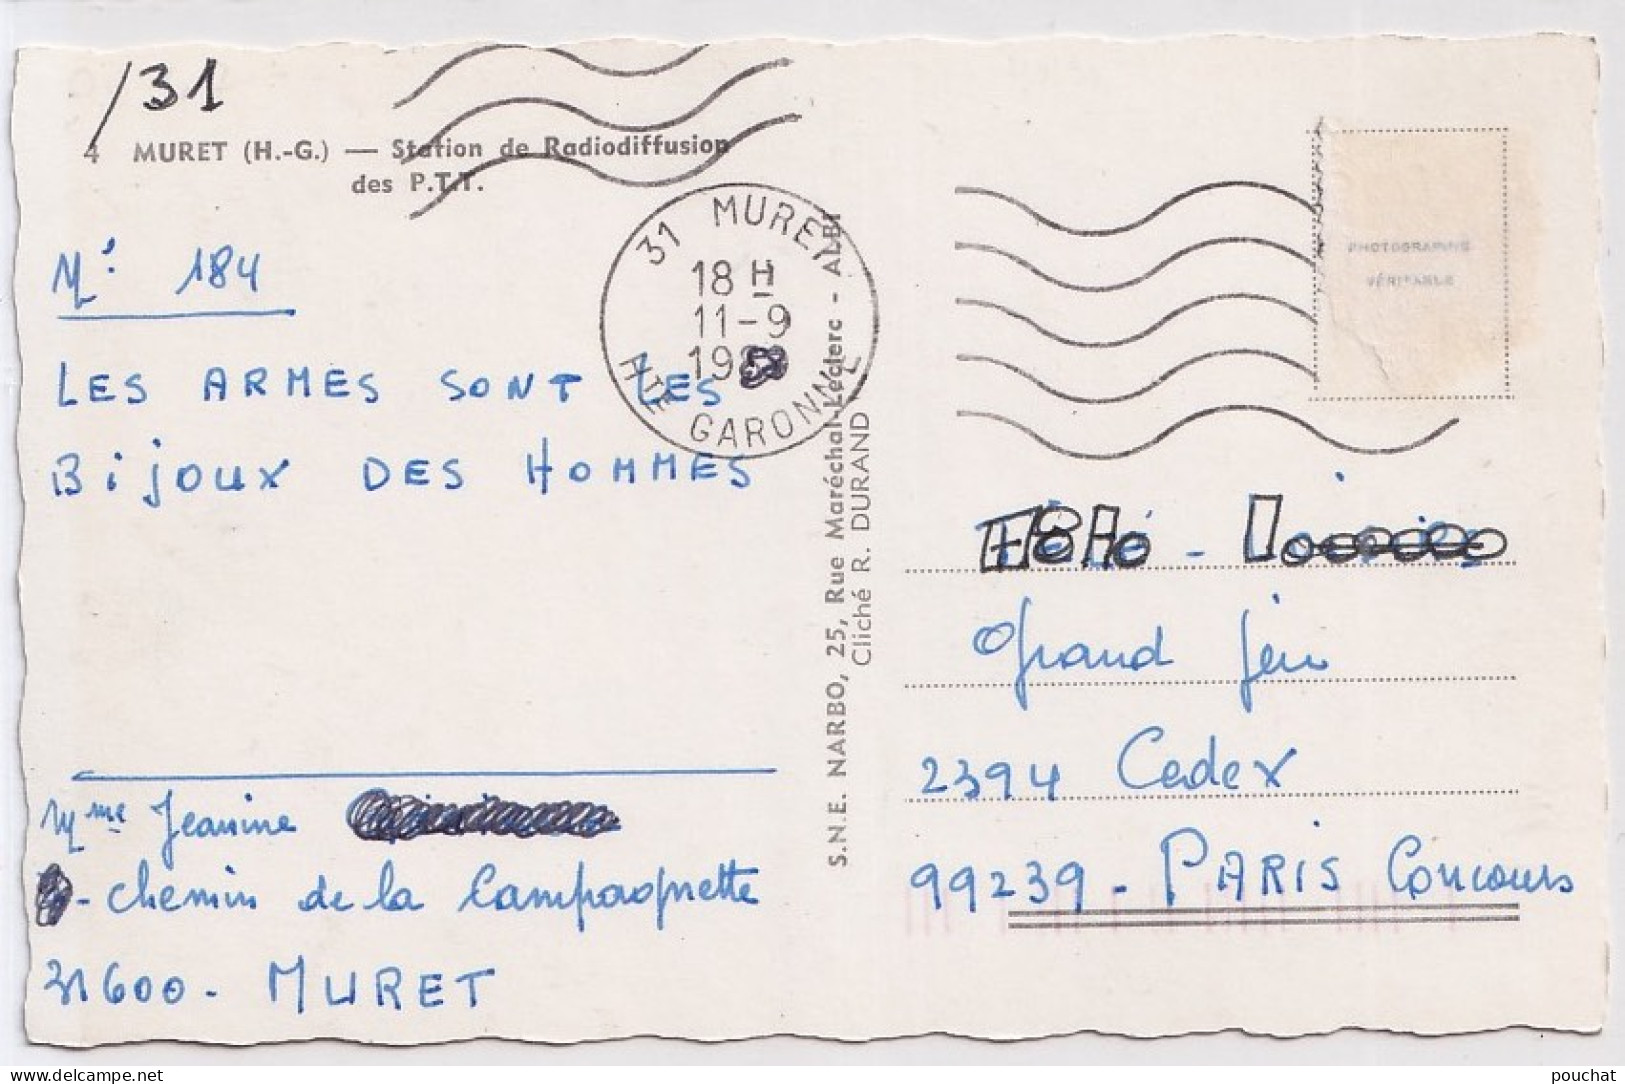 /31
4 MURET (H.-G.) — Station de Radiodiffusion
des P.T.T.
31 MURET
18 H
11-9
19
HTE GARONNE
N°: 184
LES ARMES SONT LES
BIJOUX DES HOMMES
Mme Jeanine
- Chemin de la Campagnette
31600 - MURET
S.N.E. NARBO, 25, Rue Maréchal-Leclerc - ALBI
Cliché R. DURAND
PHOTOGRAPHIE
VÉRITABLE
Grand Jeu
2394 Cedex
99239 - PARIS Concours
pouchat